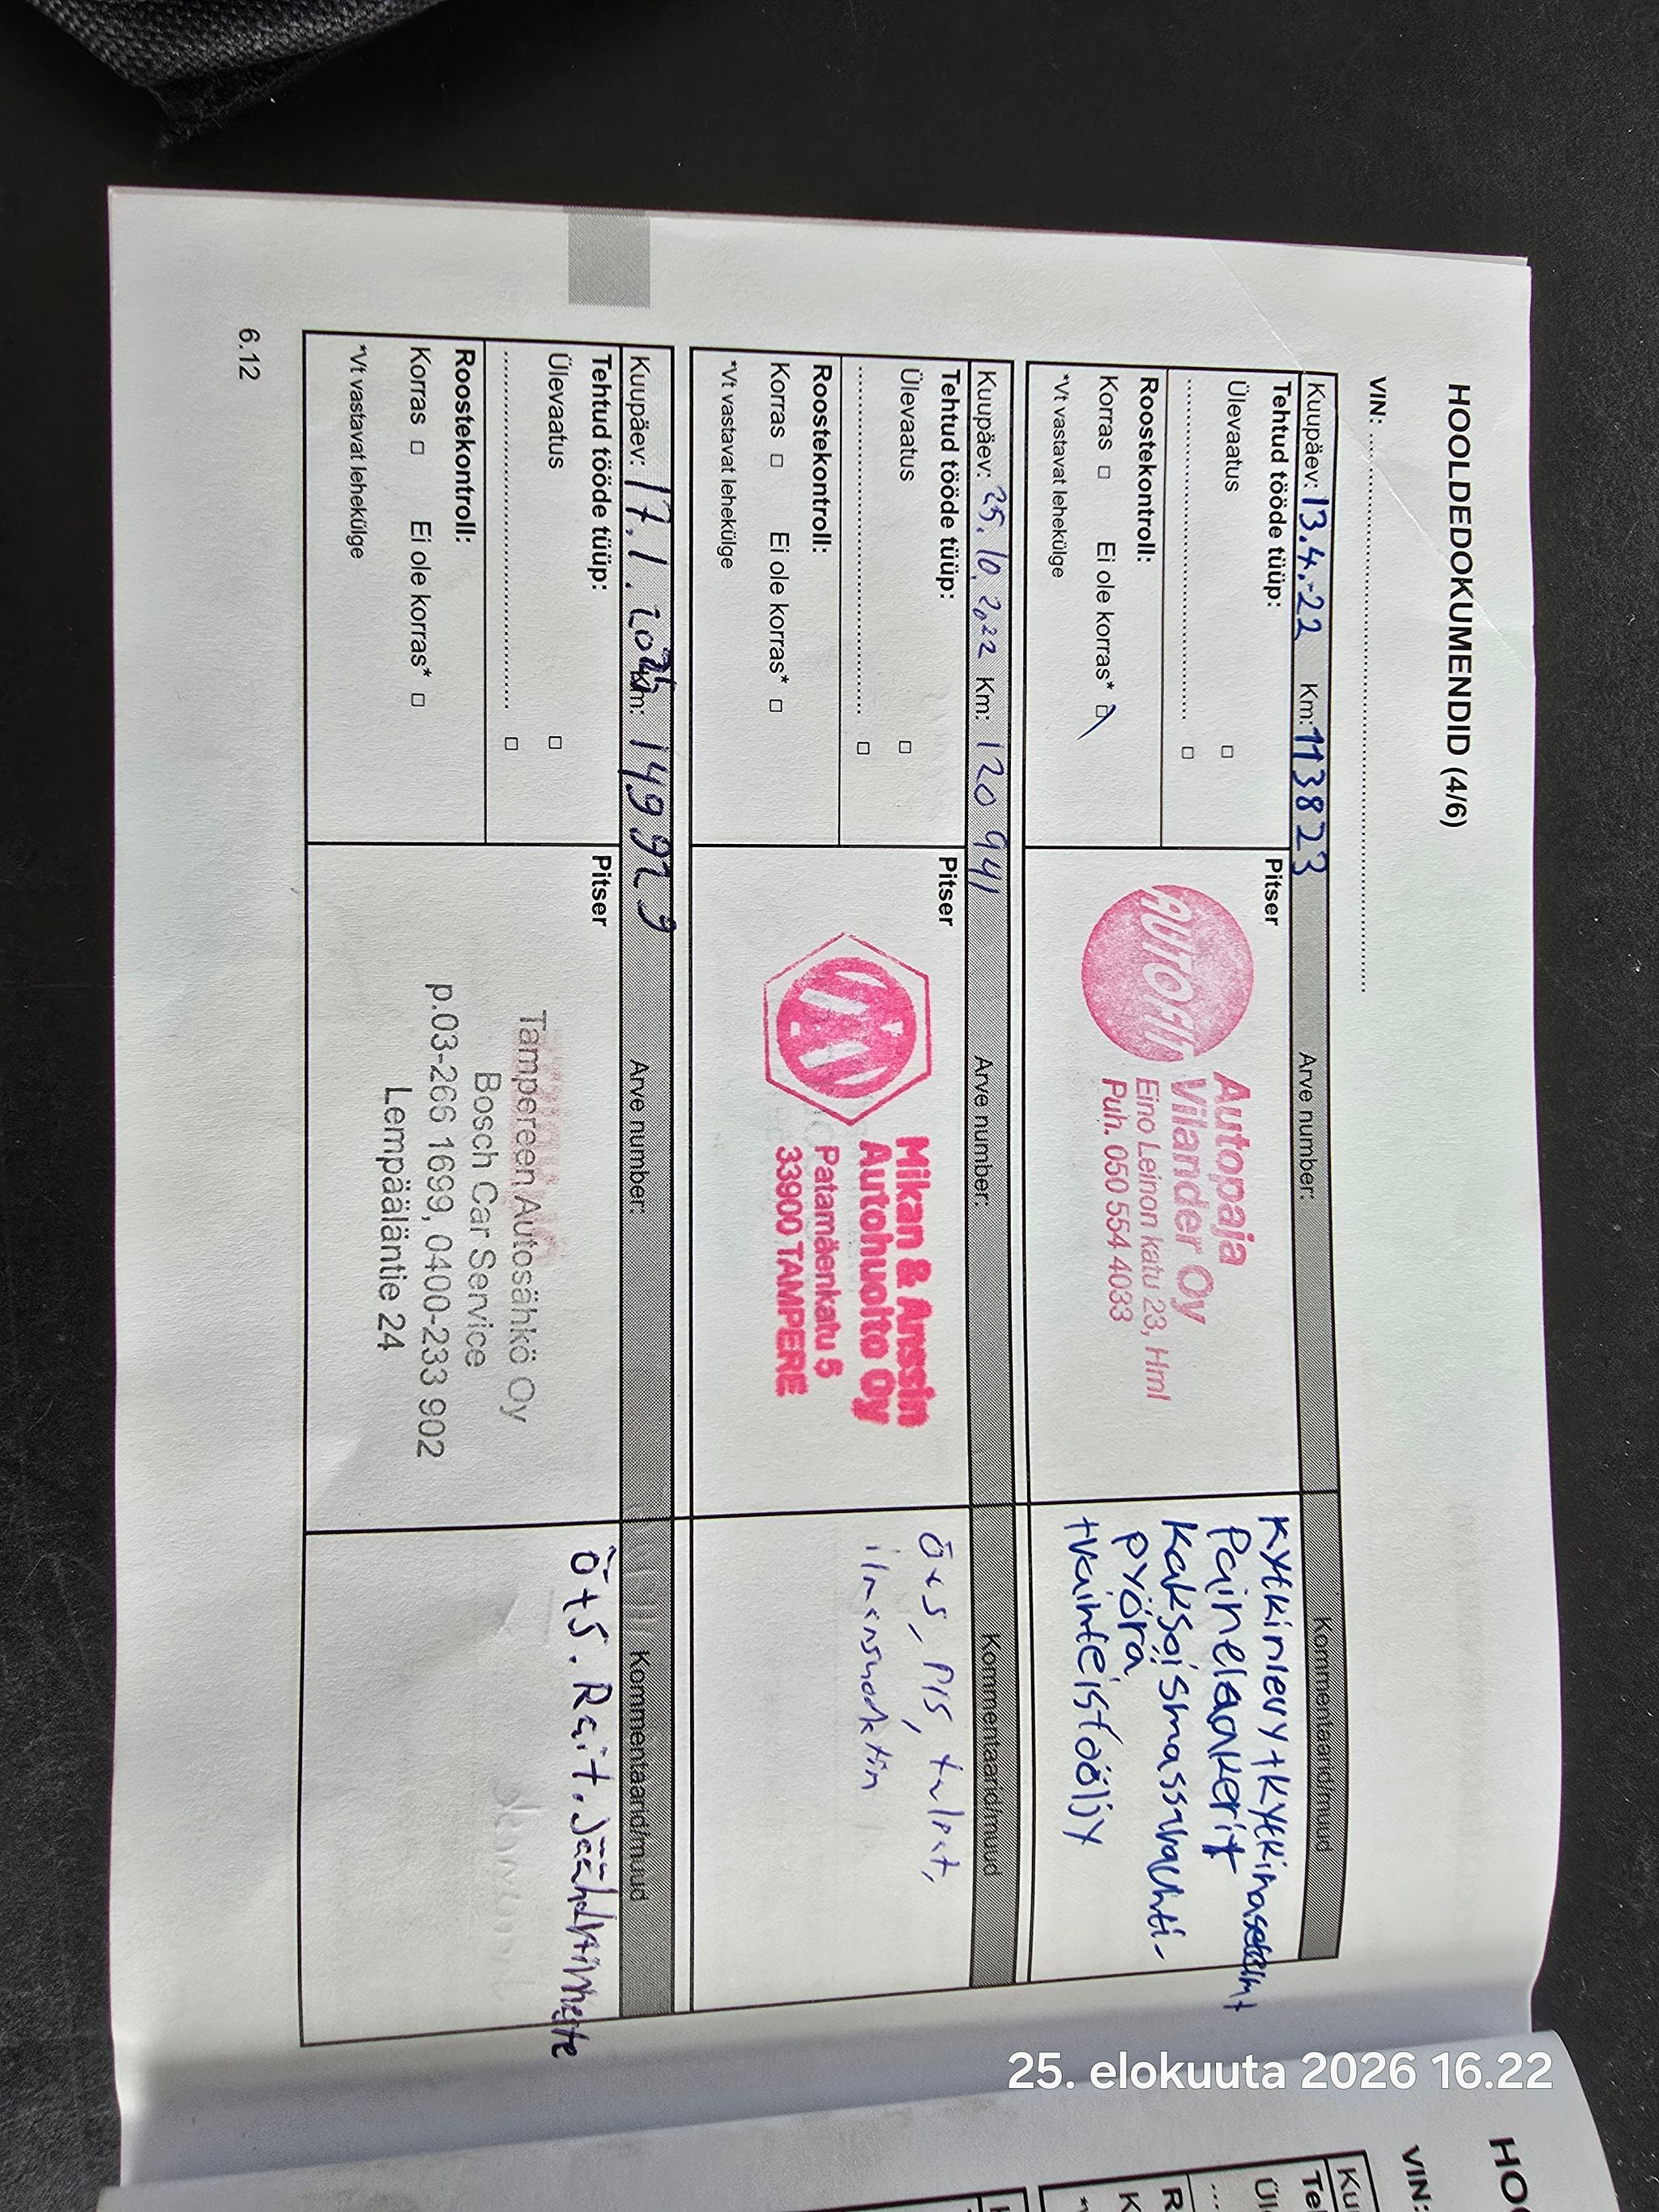 HOOLDEDOKUMENDID (4/6)
VIN:
Kuupäev: 13.4.-22 Km: 113823 Arve number: Kommentaarid/muud
Tehtud tööde tüüp:
Ülevaatus □
□
Roostekontroll:
Korras □ Ei ole korras* □
*Vt vastavat lehekülge
Pitser
AUTOfit
Autopaja
Vilander Oy
Eino Leinon katu 23, Hml
Puh. 050 554 4033
Kytkinlevy+kytkinasetelm+
Painelaakerit
Kaksoismassavauhti-
pyörä
+vaihteistoöljy
Kuupäev: 25.10.2022 Km: 120 941 Arve number: Kommentaarid/muud
Tehtud tööde tüüp:
Ülevaatus □
□
Roostekontroll:
Korras □ Ei ole korras* □
*Vt vastavat lehekülge
Pitser
Mikan & Anssin
Autohuolto Oy
Patamäenkatu 5
33900 TAMPERE
Ö+S, PIS, tulpat,
ilmansuodatin
Kuupäev: 17.1. Km: 149929 Arve number: Kommentaarid/muud
Tehtud tööde tüüp:
Ülevaatus □
□
Roostekontroll:
Korras □ Ei ole korras* □
*Vt vastavat lehekülge
Pitser
Tampereen Autosähkö Oy
Bosch Car Service
p.03-266 1699, 0400-233 902
Lempääläntie 24
Ö+S. Rait. Jäähdytinneste
6.12
25. elokuuta 2026 16.22
HO
VIN:
Ku
Te
Ül
R
K